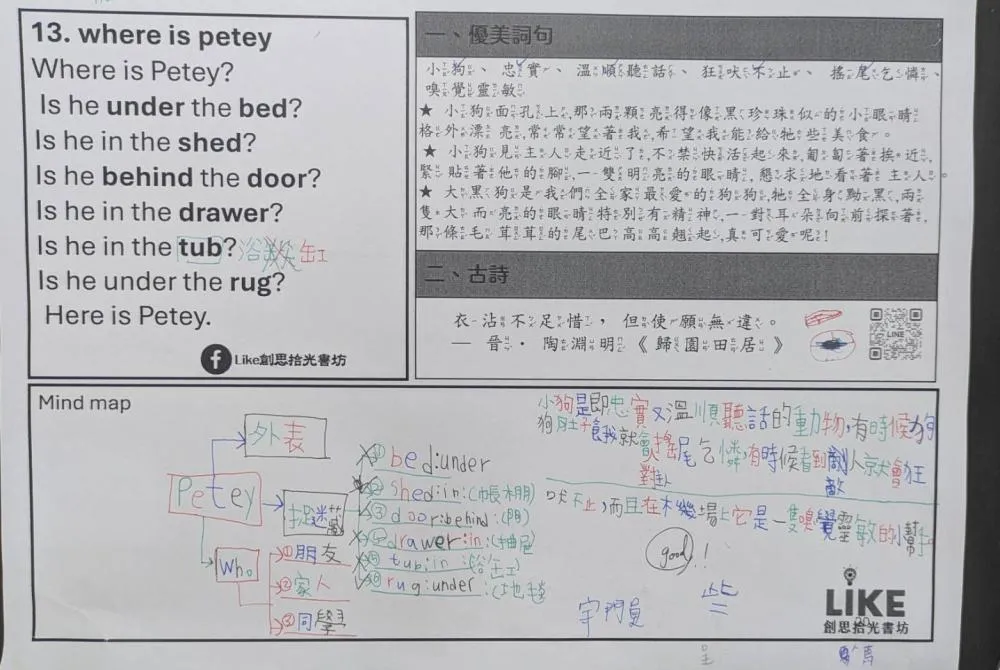 13. where is petey
Where is Petey?
Is he under the bed?
Is he in the shed?
Is he behind the door?
Is he in the drawer?
Is he in the tub? 浴 缸
Is he under the rug?
Here is Petey.
Like創思拾光書坊
一、優美詞句
小狗、忠實、溫順聽話、狂吠不止、搖尾乞憐、
嗅覺靈敏
★ 小狗面孔上,那兩顆亮得像黑珍珠似的小眼睛
格外漂亮,常常望著我,希望我能給牠些美食。
★ 小狗見主人走近了,不禁快活起來,匍匐著挨近,
緊貼著他的腳,一雙明亮的眼睛,懇求地看著主人。
★ 大黑狗是我們全家最愛的狗狗,牠全身黝黑,兩
隻大而亮的眼睛特別有精神,一對耳朵向前探著,
那條毛茸茸的尾巴高高翹起,真可愛呢!
二、古詩
衣沾不足惜，但使願無違。
— 晉· 陶淵明《歸園田居》
LINE
Mind map
Petey
外表
捉迷藏
who
①朋友
②家人
③同學
①bed:under
②shed:in:(帳棚)
③door:behind:(門)
drawer:in:(抽屉
tub:in:(浴缸
rug:under:(地毯
小狗是即忠實又溫順聽話的動物,有時候狗
狗肚子餓就會搖尾乞憐,有時候看到敵人就會狂
對
敵
吠不止,而且在機場上它是一隻嗅覺靈敏的小幫手。
good!
LIKE
創思拾光書坊